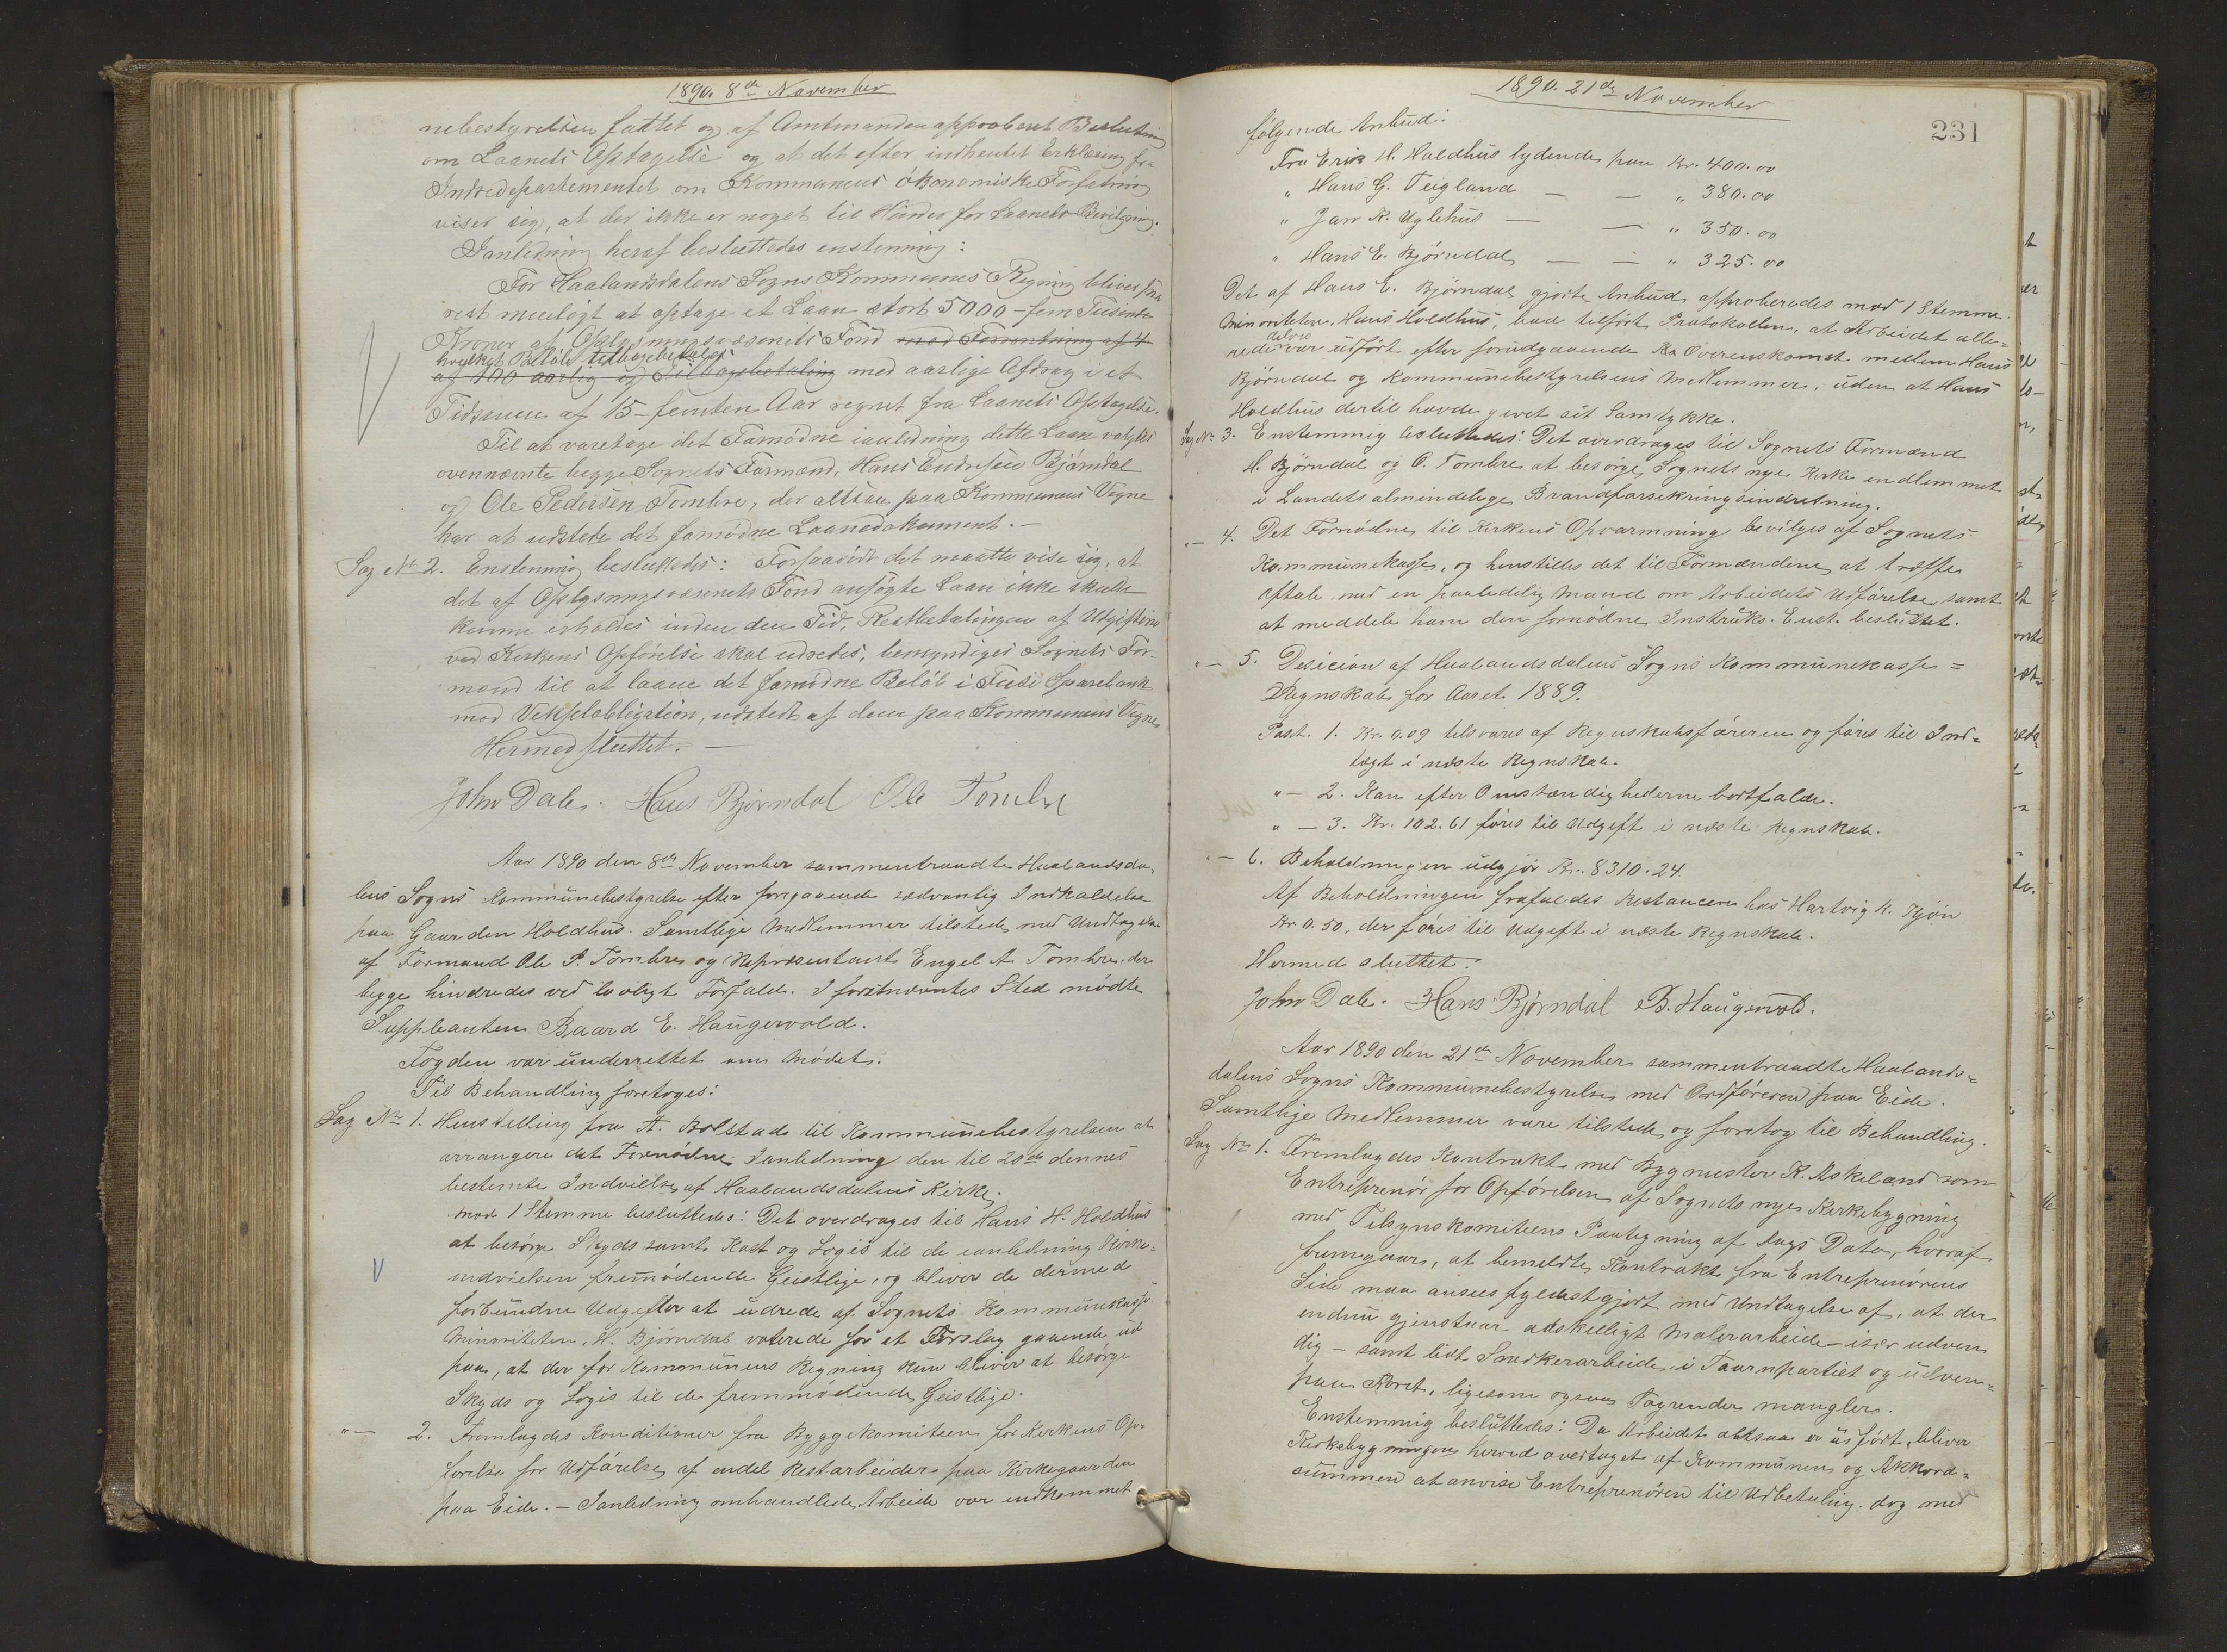 1890. 8de November
nebestyrelsen fattet og af Amtmanden approberet Beslutning
om Laanets Optagelse og at det efter indhentet Erklæring fra
Indredepartementet om Kommunens økonomiske Forfatning
viser sig, at der ikke er noget til Hinder for Laanets Bevilgning.
Ianledning heraf besluttedes enstemmig:
For Haalandsdalens Sogns Kommunes Regning bliver
rest meeligt at optage et Laan stort 5000 - fem Tusinde
Kroner af Oplysningsvæsenets Fond med Forrentning af 4
hvilket Beløb tilbagebetales
af 100 aarlig og Tilbagebetaling med aarlige Afdrag i et
Tidsrum af 15 - femten Aar regnet fra Laanets Optagelse.
Til at varetage det Fornødne ianledning dette Laan valgtes
ovennævnte begge Sognets Formænd, Hans Endresen Bjørndal
og Ole Pedersen Tombre, der altsaa paa Kommunens Vegne
har at udstede det fornødne Laanedokument. -
Sag No 2. Enstemmig besluttedes: Forsaavidt det maatte vise sig, at
det af Oplysningsvæsenets Fond ansøgte Laan ikke skulde
kunne erholdes inden den Tid, Restbetalingen af Udgifterne
ved Kirkens Opførelse skal udredes, bemyndiges Sognets For-
mænd til at laane det fornødne Beløb i Fuse Sparebank
mod Vekselobligation, udstedt af dem paa Kommunens Vegne
Hermed sluttet. -
John Dale. Hans Bjørndal Ole Tombre
Aar 1890 den 8de November sammentraadte Haalandsda-
lens Sogns Kommunebestyrelse efter foregaaende sædvanlig Indkaldelse
paa Gaarden Holdhus. Samtlige Medlemmer tilstede med Undtagelse
af Formand Ole P. Tombre og Repræsentant Engel A Tombre, der
begge hindredes ved lovligt Forfald. I førstnævntes Sted mødte
Suppleanten Baard E. Haugervold.
Fogden var underrettet om Mødet.
Til Behandling foretoges:
Sag No 1. Henstilling fra A. Bolstad til Kommunebestyrelsen at
arrangere det Fornødne Ianledning den til 20de dennes
bestemte Indvielse af Haalandsdalens Kirke.
Mod 1 Stemme besluttedes: Det overdrages til Hans H. Holdhus
at besørge Skyds samt Kost og Logis til de ianledning Kirke-
indvielsen fremmødende Geistlige, og bliver de dermed
forbundne Udgifter at udrede af Sognets Kommunekasse
Minoriteten, H. Bjørndal voterede for et Forslag gaaende ud
paa, at der for Kommunens Regning kun bliver at besørge
Skyds og Logis til de fremmødende Geistlige.
" — 2. Fremlagdes Konditioner fra Byggekomiteen for Kirkens Op-
førelse for Udførelse af endel Restarbeider paa Kirkegaarden
paa Eide. - Ianledning omhandlede Arbeide var indkommet
1890. 21de November
231
følgende Anbud:
Fra Erik H. Holdhus lydende paa Kr. 400.00
" Hans G. Teigland — — " 380.00
" Jan K. Uglehus — — " 350.00
" Hans E. Bjørndal — — " 325.00
Det af Hans E. Bjørndal gjorte Anbud approberedes mod 1 Stemme.
Minoriteten, Hans Holdhus, bad tilført Protokollen, at Arbeidet alle-
delvis
rede var udført efter forudgaaende Overenskomst mellem Hans
Bjørndal og Kommunebestyrelsens Medlemmer, uden at Hans
Holdhus dertil havde givet sit Samtykke.
Sag No 3. Enstemmig besluttedes: Det overdrages til Sognets Formænd
H. Bjørndal og O. Tombre at besørge Sognets nye Kirke indlemmet
i Landets almindelige Brandforsikringsindretning.
" — 4. Det Fornødne til Kirkens Opvarmning bevilges af Sognets
Kommunekasse, og henstilles det til Formændene at træffe
Aftale med en paalidelig Mand om Arbeidets Udførelse samt
at meddele ham den fornødne Instruks. Enst. besluttet.
" — 5. Desicion af Haalandsdalens Sogns Kommunekasse-
Regnskab for Aaret 1889.
Post. 1. Kr. 0.09 tilsvares af Regnskabsføreren og føres til Ind-
tægt i næste Regnskab.
" — 2. Kan efter Omstændighederne bortfalde.
" — 3. Kr. 102.61 føres til Udgift i næste Regnskab.
" — 6. Beholdningen udgjør Kr. 8310.24.
Af Beholdningen frafaldes Restancen hos Hartvig K. Kjøn
Kr 0.50, der føres til Udgift i næste Regnskab.
Hermed sluttet.
John Dale. Hans Bjørndal B. Haugervold.
Aar 1890 den 21de November sammentraadte Haalands-
dalens Sogns Kommunebestyrelse med Ordføreren paa Eide.
Samtlige Medlemmer vare tilstede og foretog til Behandling.
Sag No 1. Fremlagdes Kontrakt med Bygmester K. Askeland som
Entreprenør for Opførelsen af Sognets nye Kirkebygning
med Tilsynskomiteens Paategning af Dags Dato, hvoraf
fremgaar, at bemeldte Kontrakt fra Entreprenørens
Side maa ansees fyldestgjort med Undtagelse af, at der
endnu gjenstaar adskilligt Malerarbeide - især udven
dig - samt lidt Snedkerarbeide i Taarnpartiet og udven-
paa Koret, ligesom ogsaa Tagrender mangler.
Enstemmig besluttedes: Da Arbeidet altsaa er udført, bliver
Kirkebygningen herved overtaget af Kommunen og Akkord-
summen at anvise Entreprenøren til Udbetaling, dog med